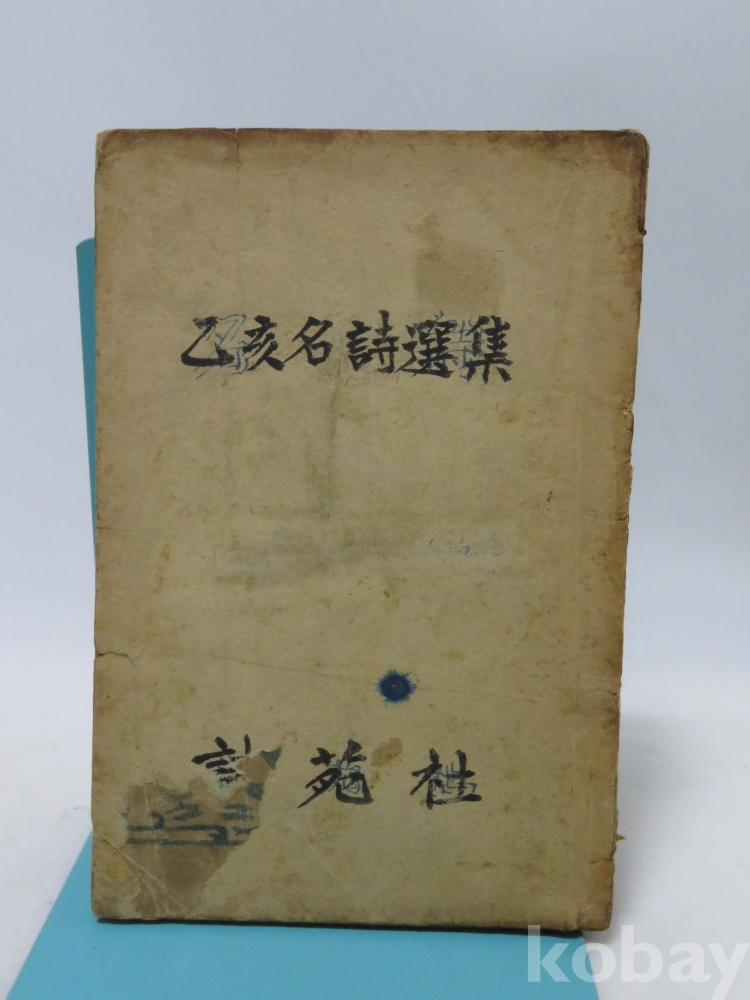 乙亥名詩選集
詩苑社
kobay